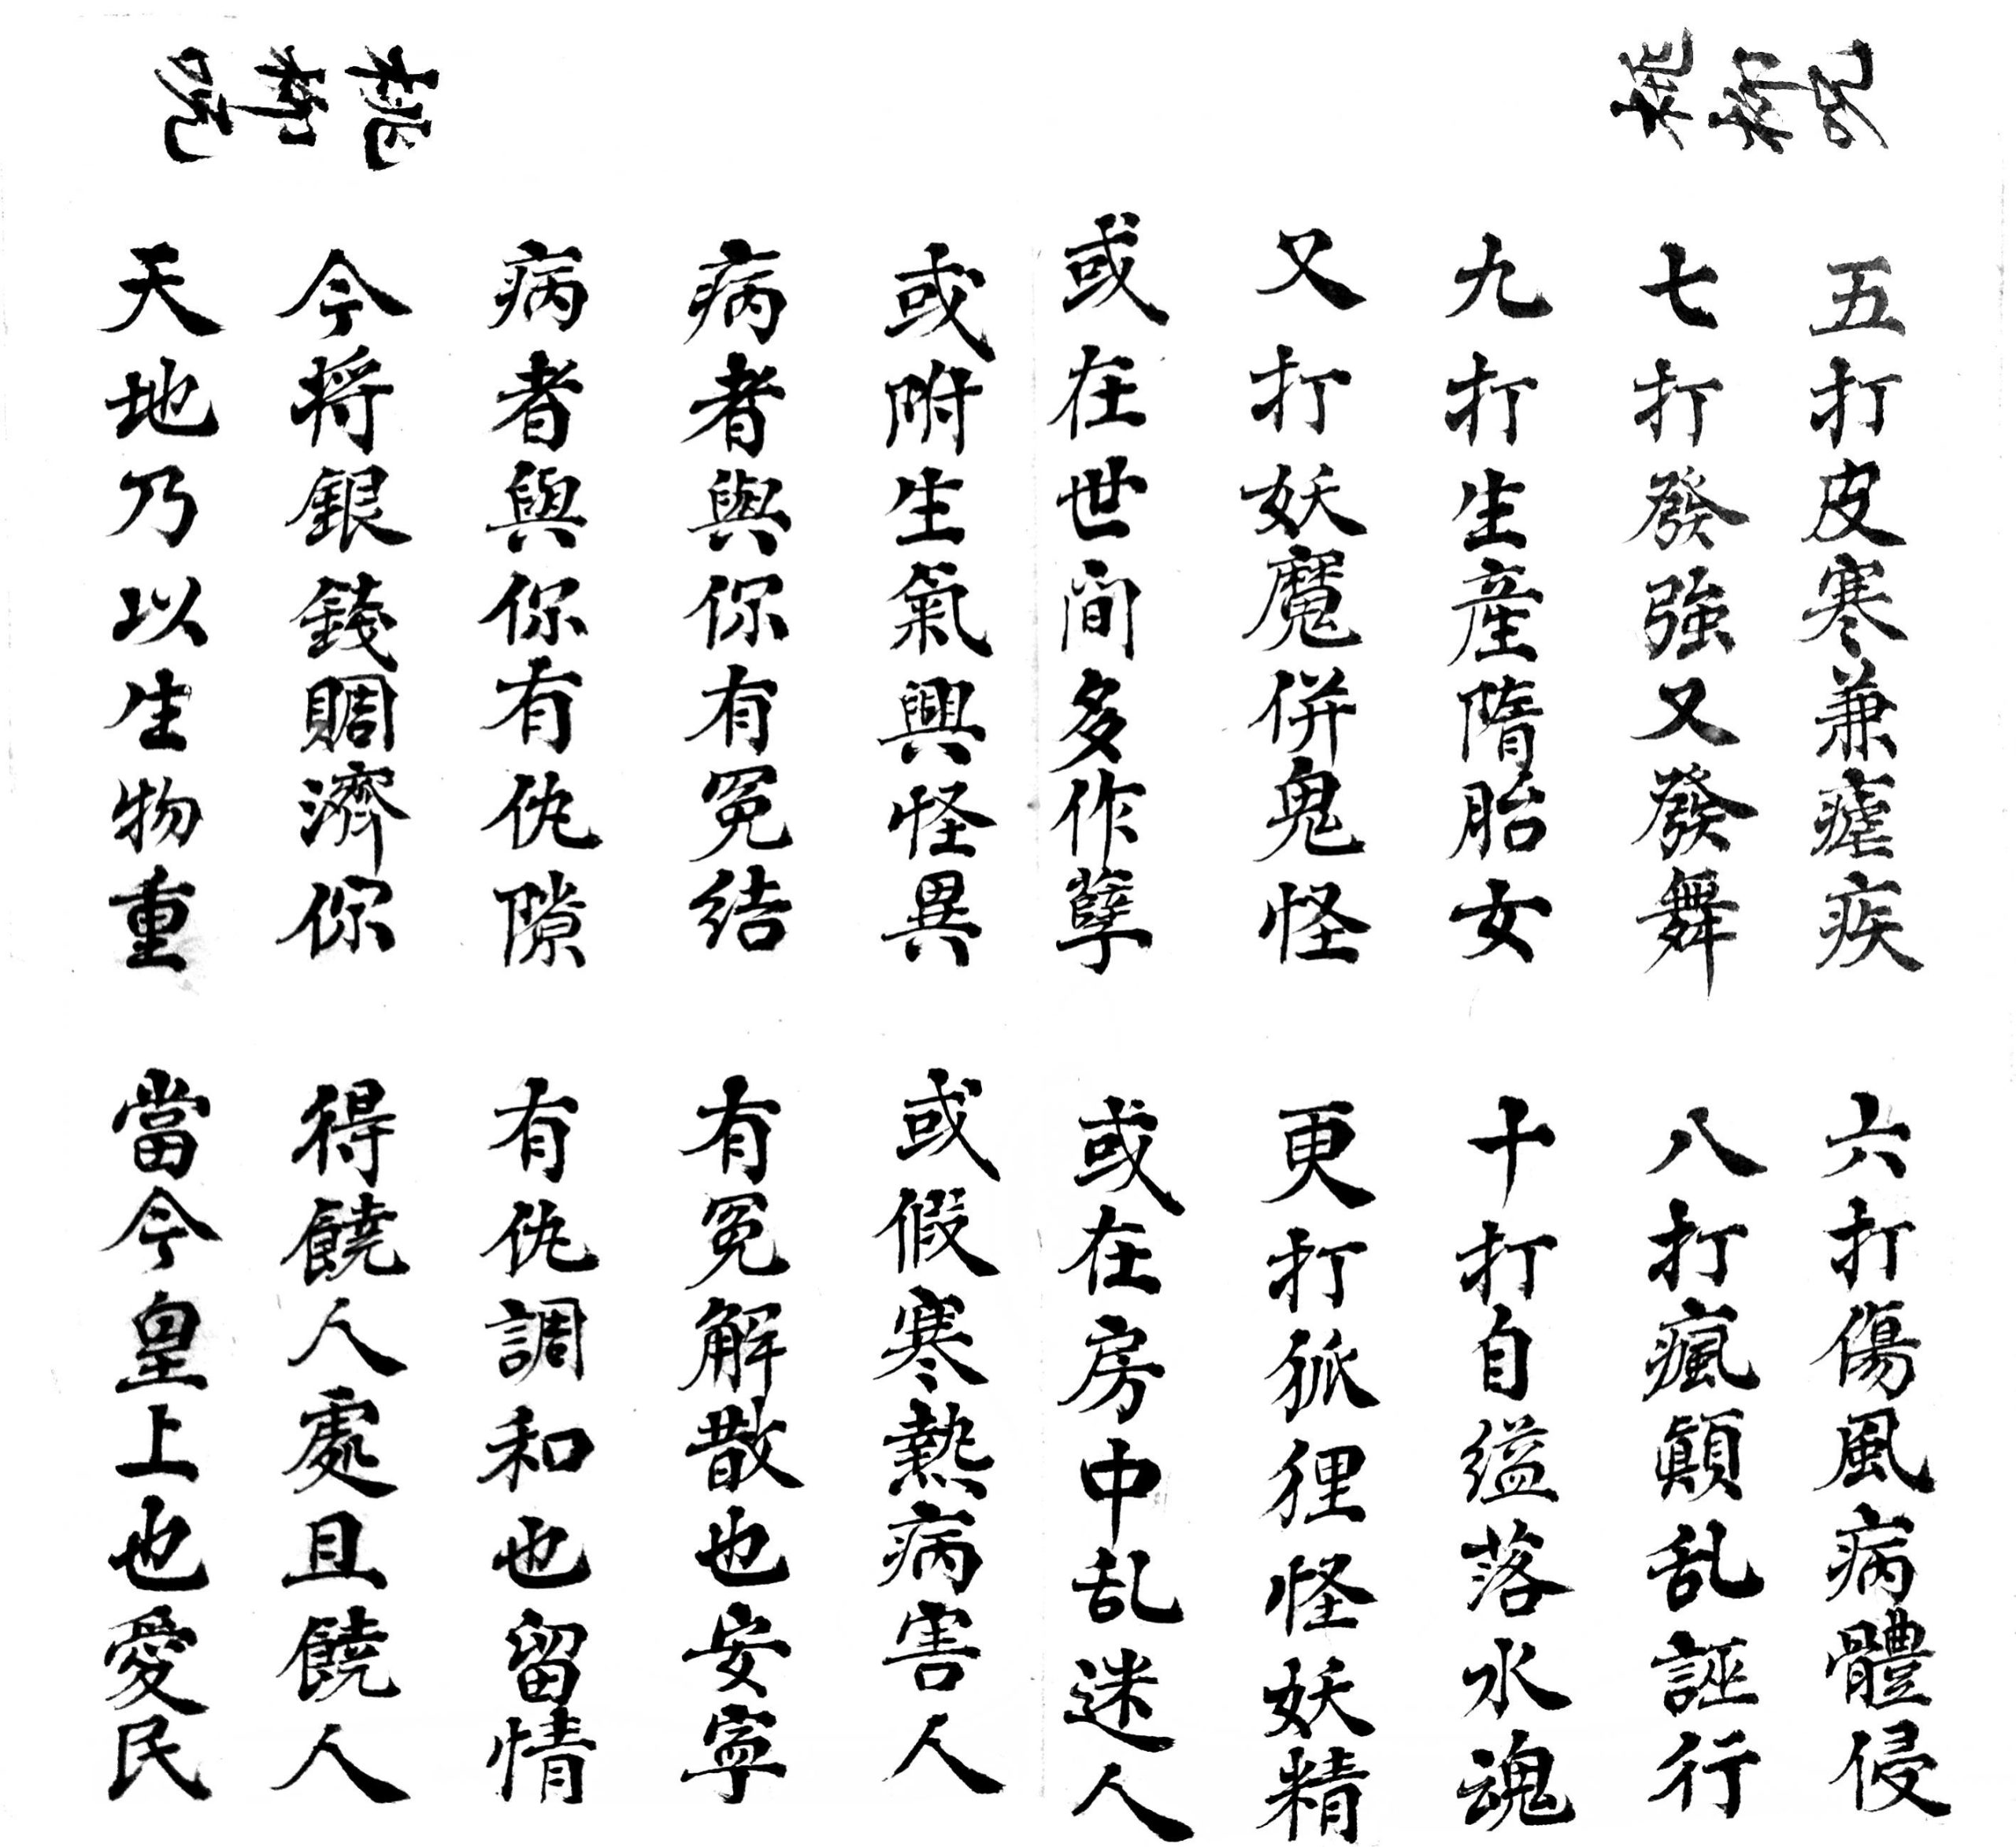 五打皮寒兼瘧疾
六打傷風病體侵
七打發強又發舞
八打瘋顛乱誣行
九打生產隋胎女
十打自缢落水魂
又打妖魔併鬼怪
更打狐狸怪妖精
或在世间多作孽
或在房中乱迷人
或附生氣興怪異
或假寒熱病害人
病者與你有冤结
有冤解散也安寧
病者與你有仇隙
有仇調和也留情
今将銀錢賙濟你
得饒人處且饒人
天地乃以生物重
當今皇上也愛民